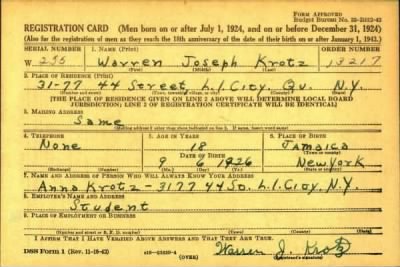 FORM APPROVED
REGISTRATION CARD (Men born on or after July 1, 1924, and on or before December 31, 1924)
(Also for the registration of men as they reach the 18th anniversary of the date of their birth on or after January 1, 1943.)
SERIAL NUMBER 1. NAME (Print) ORDER NUMBER
W 255 Warren Joseph Krotz 13217
(First) (Middle) (Last)
2. PLACE OF RESIDENCE (Print)
31-77 44 Street L.I. City. Qu. N.Y.
(State)
[THE PLACE OF RESIDENCE GIVEN ON LINE 2 ABOVE WILL DETERMINE LOCAL BOARD
JURISDICTION; LINE 2 OF REGISTRATION CERTIFICATE WILL BE IDENTICAL]
3. MAILING ADDRESS
Same
4. TELEPHONE 5. AGE IN YEARS 6. PLACE OF BIRTH
None 18 Jamaica
DATE OF BIRTH
9 6 1926 New York
7. NAME AND ADDRESS OF PERSON WHO WILL ALWAYS KNOW YOUR ADDRESS
Anna Krotz - 3177 44 St. L.I. City, N.Y.
8. EMPLOYER'S NAME AND ADDRESS
Student
9. PLACE OF EMPLOYMENT OR BUSINESS
I AFFIRM THAT I HAVE VERIFIED ABOVE ANSWERS AND THAT THEY ARE TRUE.
DSS Form 1 (Rev. 11-16-42) (OVER) Warren J. Krotz